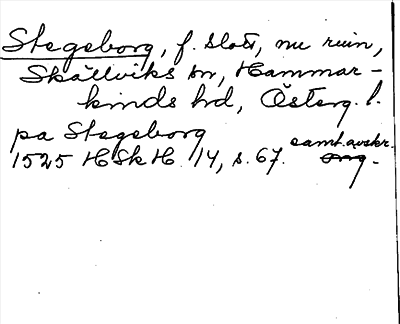 Stegeborg, f. slott, nu ruin,
Skällviks sn, Hammar-
kinds hd, Österg. l.
pa Stegeborg
1525 HSkH 14, s. 67. samt. avskr.